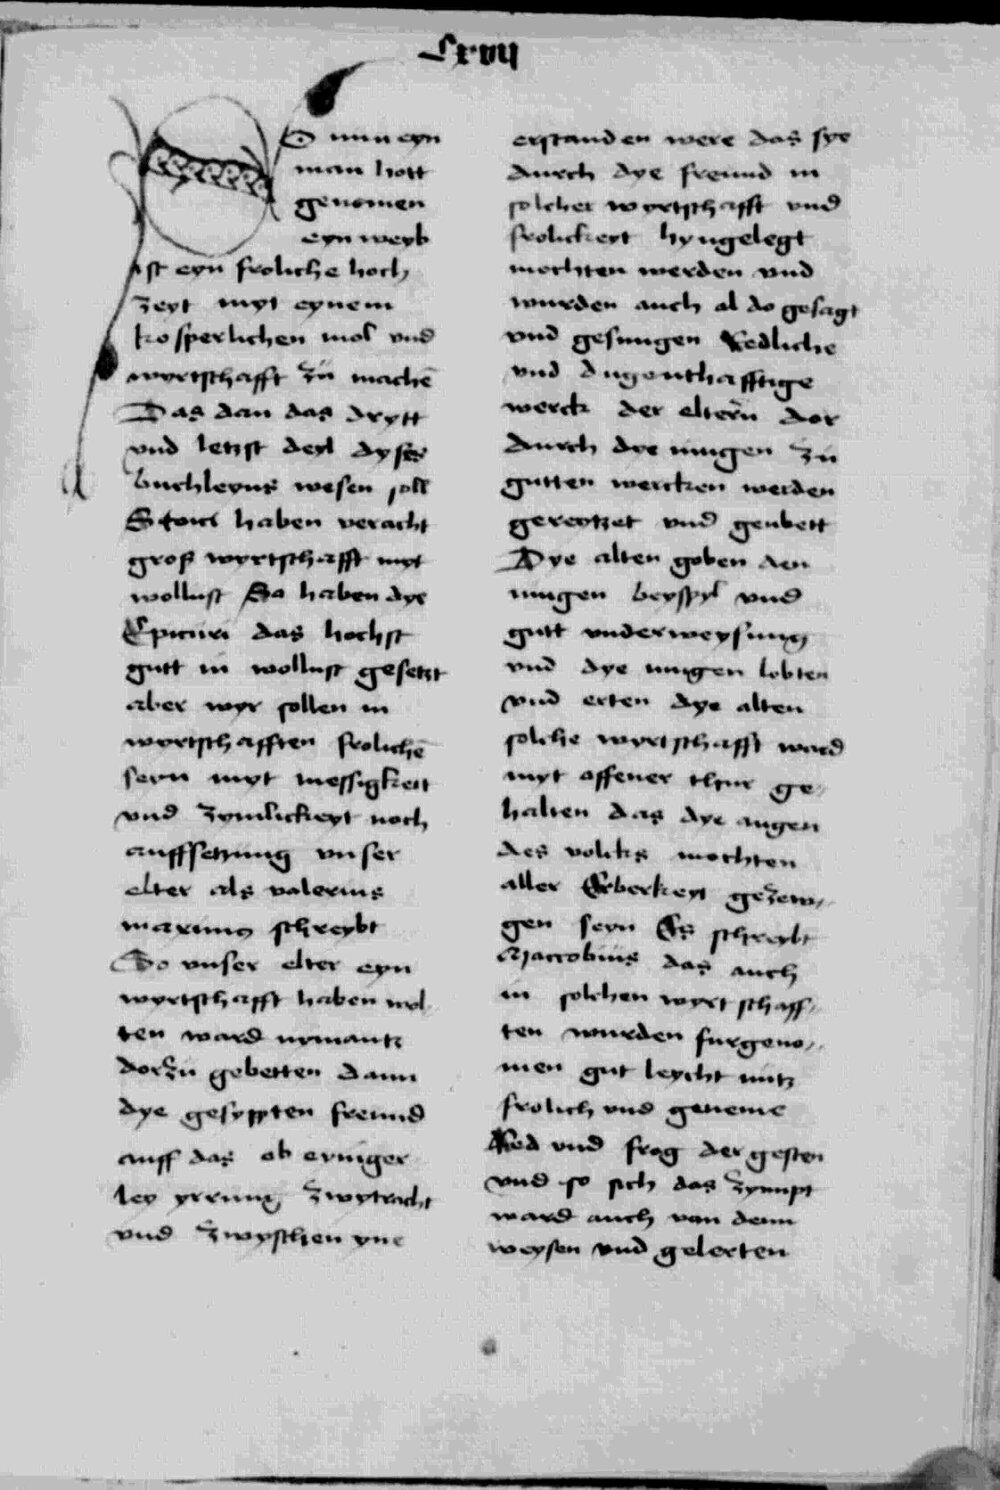 Lxvii
O nun eyn
man hott
genomen
eyn weyb
ist eyn froliche hoch
zeyt myt eynem
kosperlichen mol vnd
wyrtschafft zů machē
Das dan das drytt
vnd letzst deyl dyses
buchleyns wesen soll
Stoici haben veracht
groß wyrtschafft myt
wollust So haben dye
Epicuri das hochst
gutt in wollust gesetzt
aber wyr sollen in
wyrtschafften frolichē
seyn myt messigkeit
vnd zymlickeyt noch
auffsetzung vnser
elter als valerius
maximus schreybt
So vnser elter eyn
wyrtschafft haben wol
ten ward nymantz
dorzů gebetten dann
dye gesyppten freund
auff das ob eyniger
ley yrrung zwytracht
vnd zwyschen yne
erstanden were das sye
durch dye freund in
solcher wyrtschafft vnd
frolickeyt hyngelegt
mochten werden vnd
wurden auch al do gesagt
vnd gesungen Redliche
vnd dugenthafftige
werck der eltern dor
durch dye iungen zů
gutten wercken werden
gereytzet vnd geubett
Dye alten goben den
iungen beyspyl vnd
gutt vnderweysung
vnd dye iungen lobten
vnd erten dye alten
solche wyrtschafft ward
myt offener thur ge-
halten das dye augen
des volcks mochten
aller Erberkeyt gezew-
gen seyn Es schreybt
Macrobius das auch
in solchen wyrtschaff-
ten wurden furgeno-
men gut leycht nutz
frolich vnd geneme
Red vnd frog der gesten
vnd so sich das zympt
ward auch von denn
weysen vnd gelerten